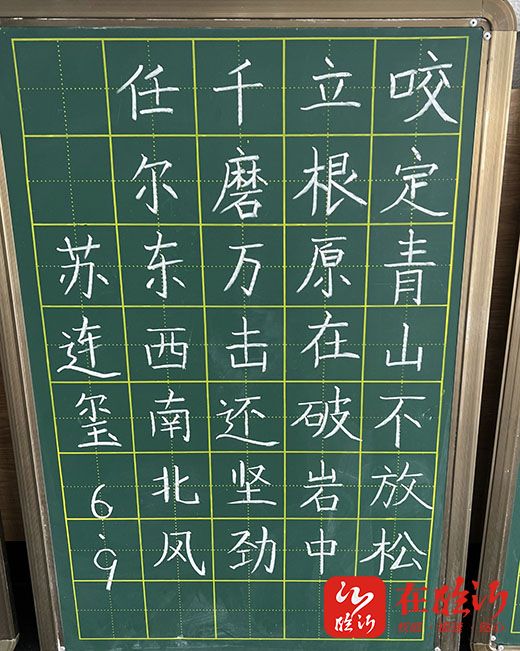 咬定青山不放松
立根原在破岩中
千磨万击还坚劲
任尔东西南北风
苏连玺
6.9
在临沂
临沂